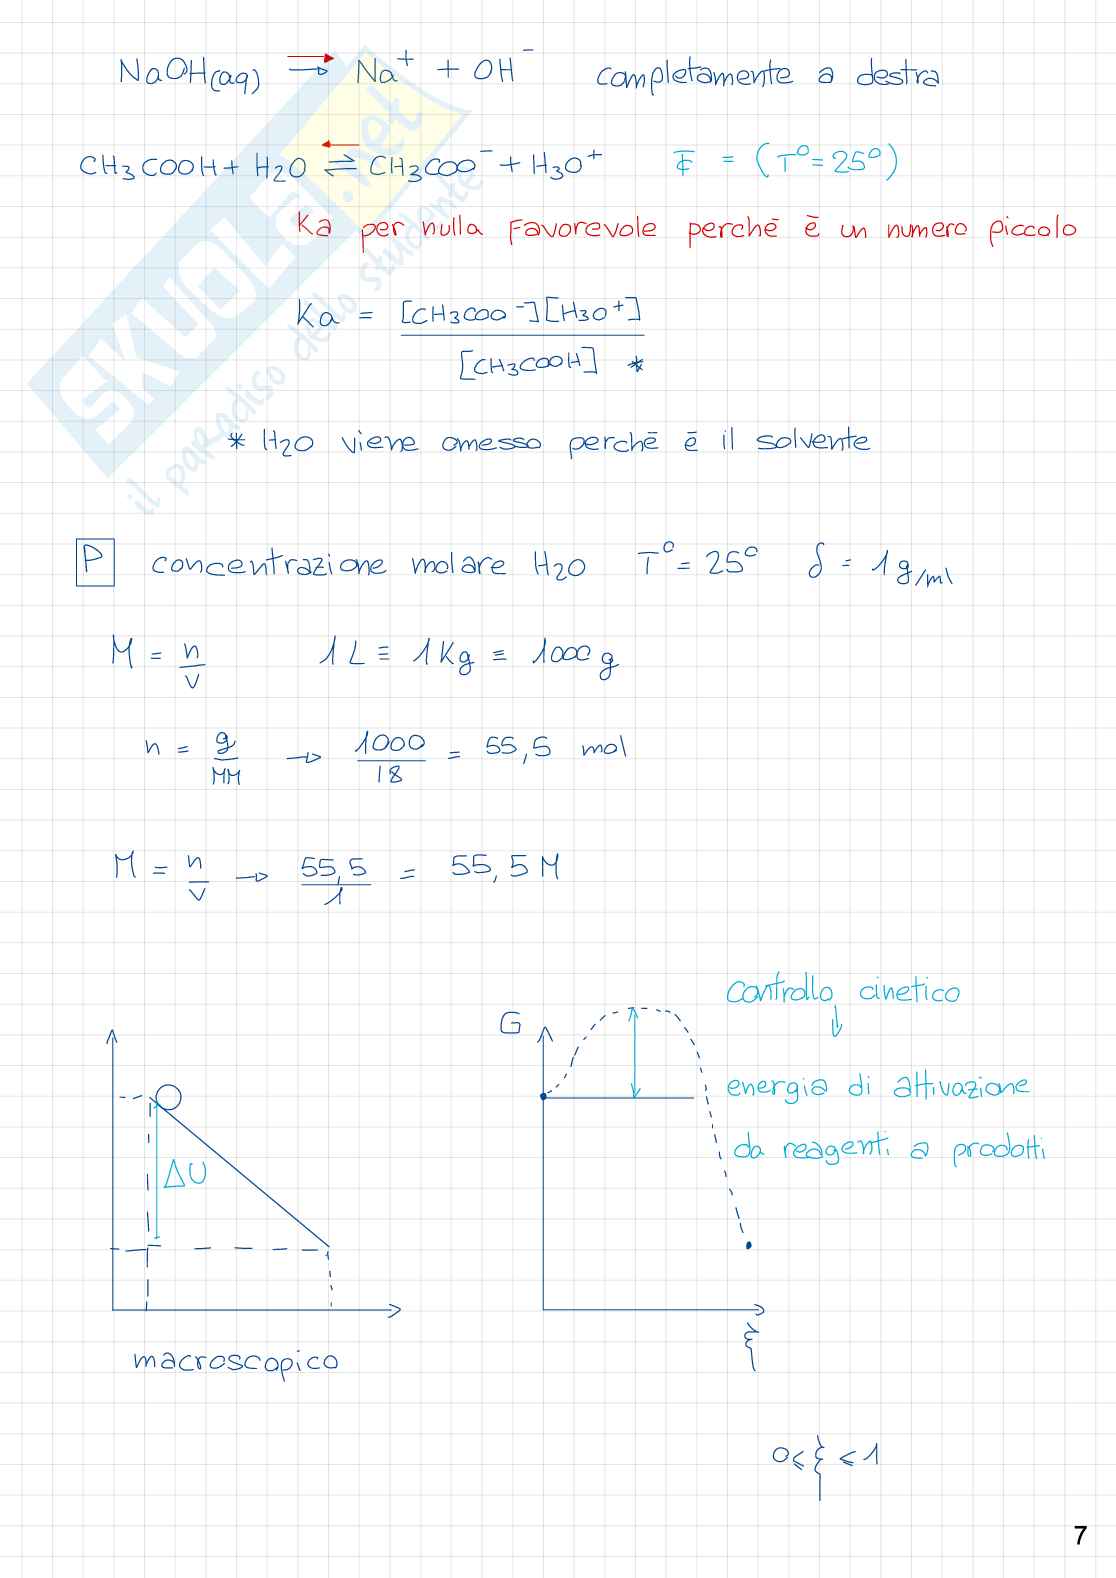 NaOH(aq) → Na⁺ + OH⁻ completamente a destra
CH₃COOH + H₂O ⇌ CH₃COO⁻ + H₃O⁺ = (T° = 25°)
Ka per nulla favorevole perchē ē un numero piccolo
Ka = [CH₃COO⁻][H₃O⁺]
[CH₃COOH] *
* H₂O viene omesso perchē ē il solvente
P concentrazione molare H₂O T° = 25° δ = 1 g/ml
M = n/V 1 L ≡ 1 Kg ≡ 1000 g
n = g/MM → 1000/18 = 55,5 mol
M = n/V → 55,5/1 = 55,5 M
controllo cinetico
↓
G
energia di attivazione
da reagenti a prodotti
ΔU
ξ
macroscopico
0 ≤ ξ ≤ 1
7
SKUOLA.net
il paradiso dello studente